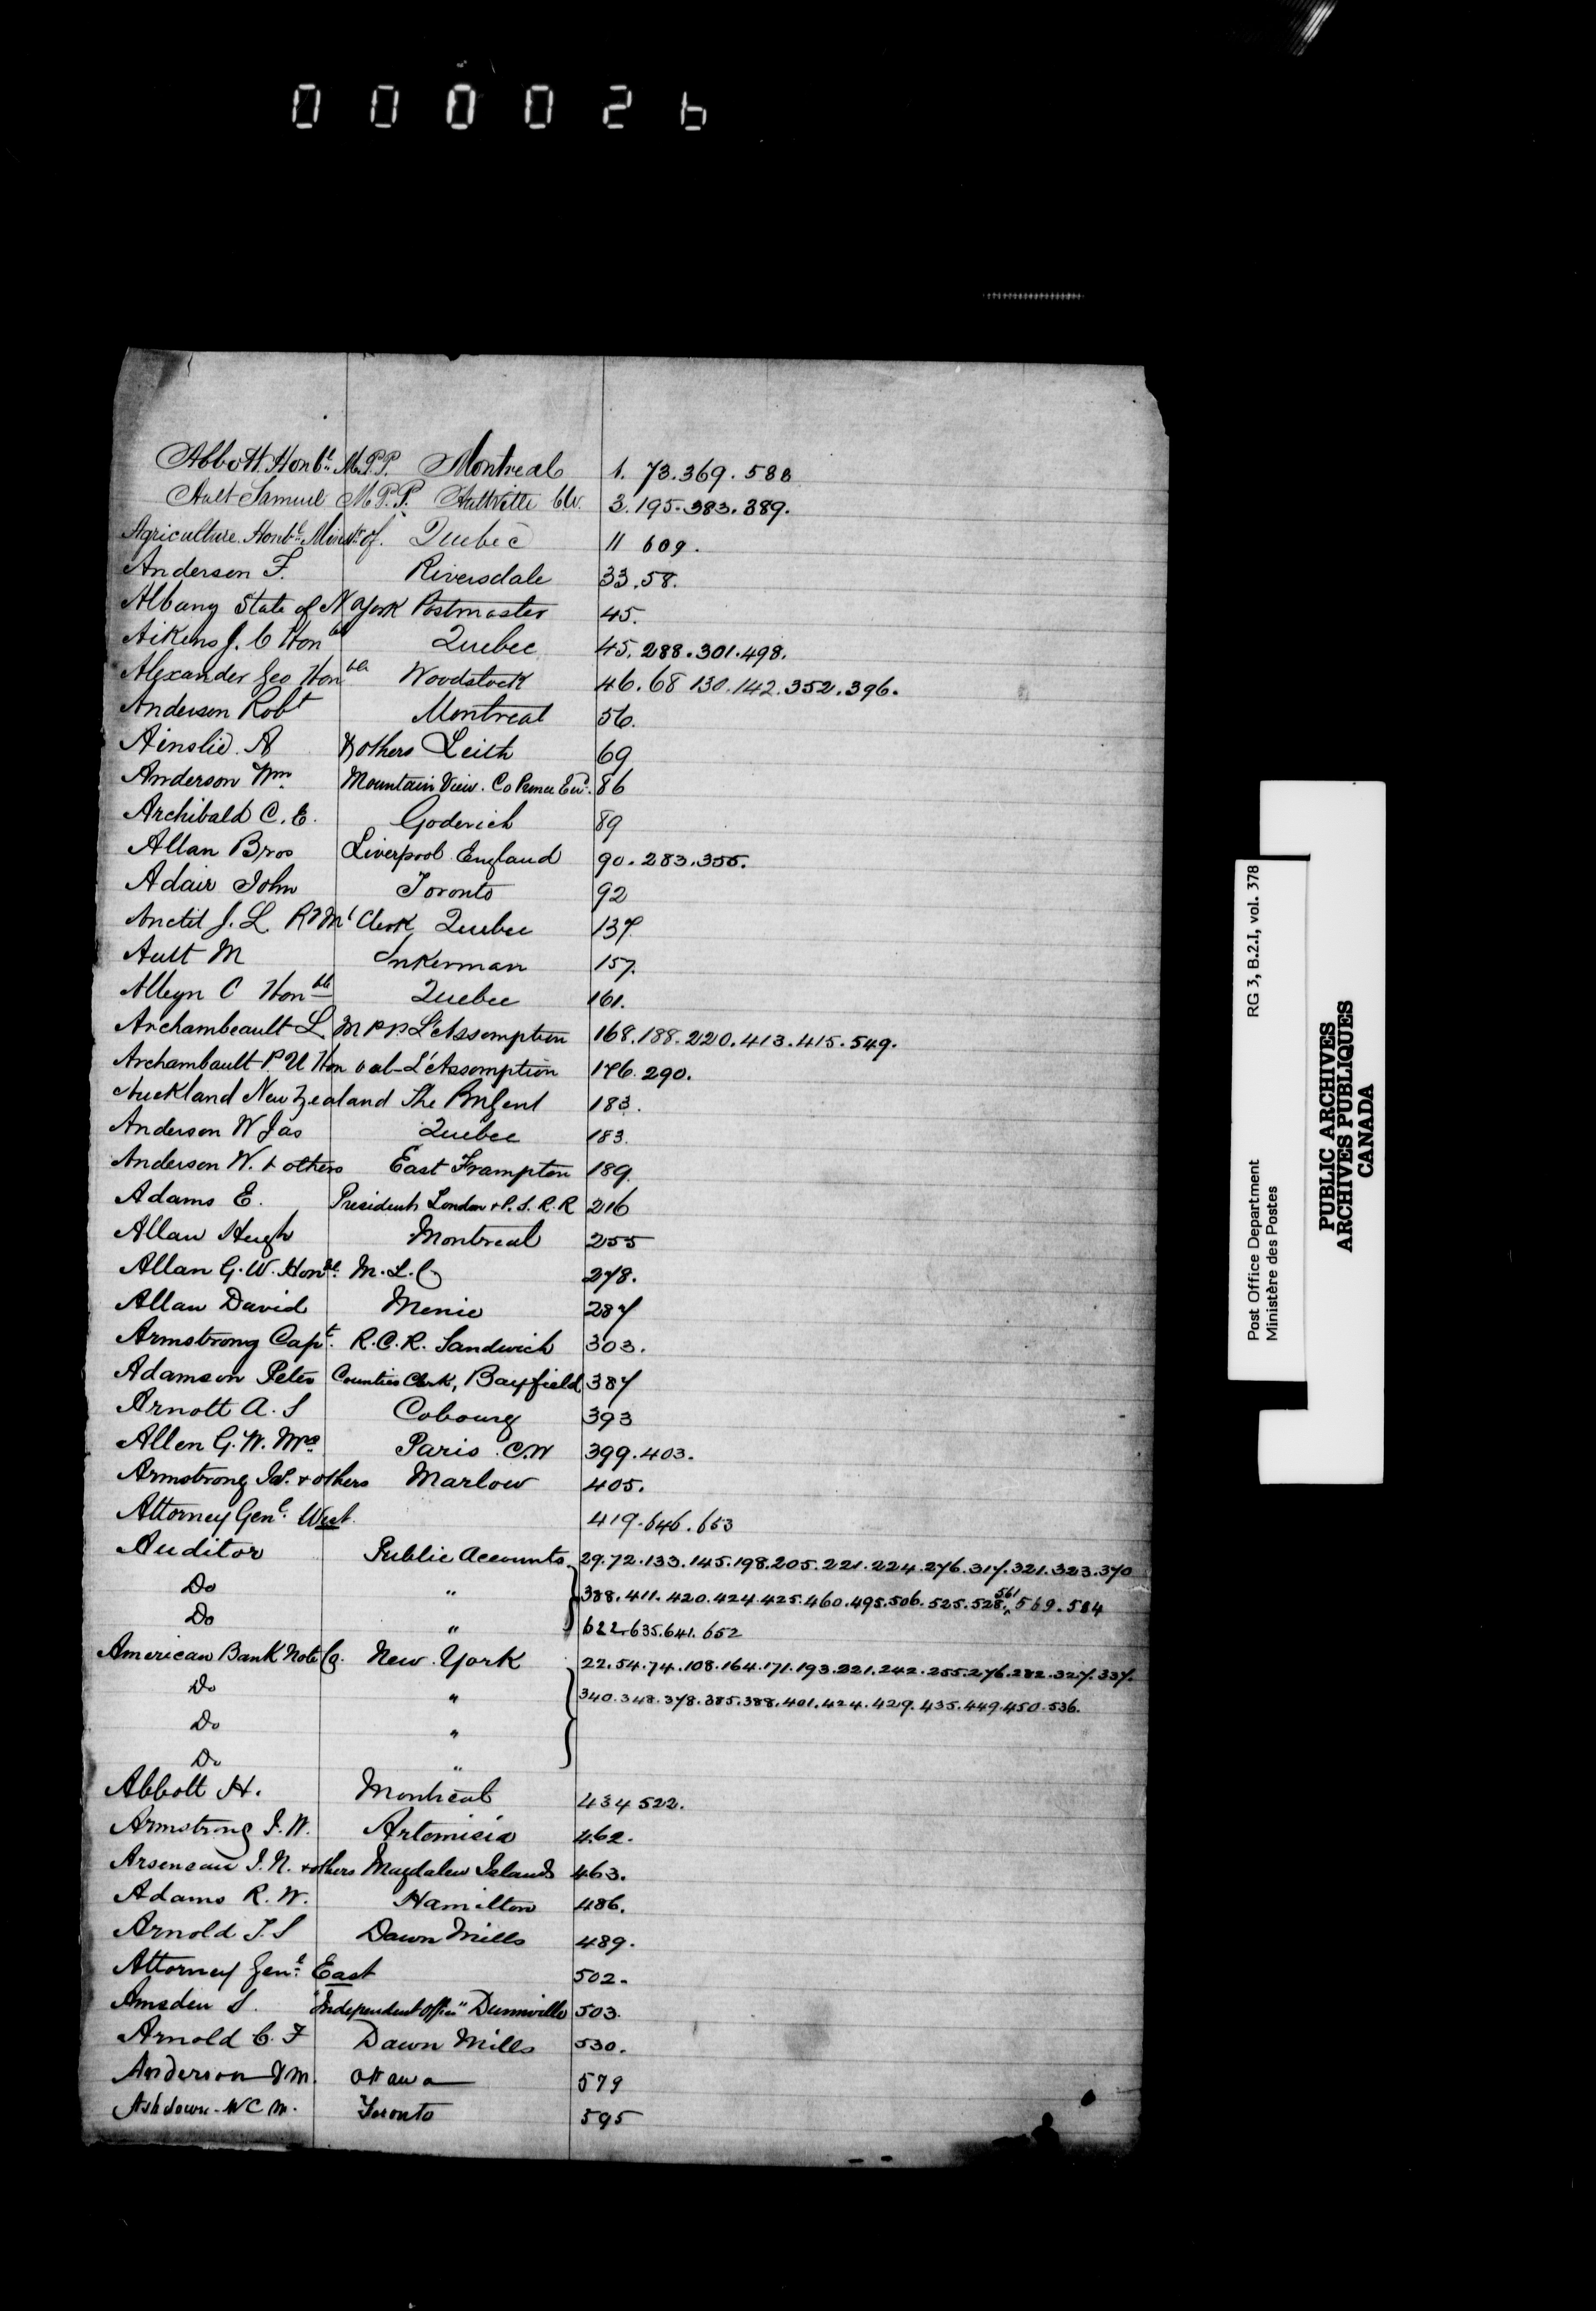 000026
Abbott Honble M.P.P. Montreal 1. 73. 369. 588
Ault Samuel M.P.P. Aultsville CW. 3. 195. 383. 389.
Agriculture Honble Minstr of. Quebec 11 609.
Anderson F. Riversdale 33. 58.
Albany State of N York Postmaster 45.
Aikens J. C Honble Quebec 45. 288. 301. 498.
Alexander Geo Honble Woodstock 46. 68 130. 142. 352. 396.
Anderson Robt Montreal 56.
Ainslie. A & others Leith 69
Anderson Wm Mountain View. Co Prince Ewd. 86
Archibald C. E. Goderich 89
Allan Bros Liverpool England 90. 283. 355.
Adair John Toronto 92
Anctil J. L. Clerk Quebec 137.
Ault M Inkerman 157.
Alleyn C Honble Quebec 161.
Archambeault L M P P. L'Assomption 168. 188. 220. 413. 415. 549.
Archambault P. U Hon L'Assomption 176. 290.
Auckland New Zealand The PmGenl 183.
Anderson W Jas Quebec 183.
Anderson W. & others East Frampton 189.
Adams E. President London & P. S. R. R 216
Allan Hugh Montreal 255
Allan G. W. Honble. M. L. C 278.
Allan David Menie 287
Armstrong Capt. R. C. R. Sandwich 303.
Adamson Peter Counties Clerk, Bayfield 387
Arnott A. S Cobourg 393
Allen G. W. Mrs Paris C.W 399. 403.
Armstrong & others Marlow 405.
Attorney Genl. West. 419. 646. 653
Auditor Public Accounts 29. 72. 133. 145. 198. 205. 221. 224. 276. 317. 321. 323. 370
Do " 388. 411. 420. 424. 425. 460. 495. 506. 525. 528. 561 569. 584
Do " 622. 635. 641. 652
American Bank Note Co. New York 22. 54. 74. 108. 164. 171. 193. 221. 242. 255. 276. 282. 327. 337.
Do " 340. 348. 378. 385. 388. 401. 424. 429. 435. 449. 450. 536.
Do "
Do "
Abbott H. Montreal 434 522.
Armstrong J. W. Artemisia 462.
Arseneau J. N. & others Magdalen Islands 463.
Adams R. W. Hamilton 486.
Arnold T. S Dawn Mills 489.
Attorney Genl. East 502.
Amsden S. "Independent Office" Dunnville 503.
Arnold C. F Dawn Mills 530.
Anderson Wm. Ottawa 579
Ashdown W C M. Toronto 595
Post Office Department RG 3, B.2.I, vol. 378
Ministère des Postes
PUBLIC ARCHIVES
ARCHIVES PUBLIQUES
CANADA